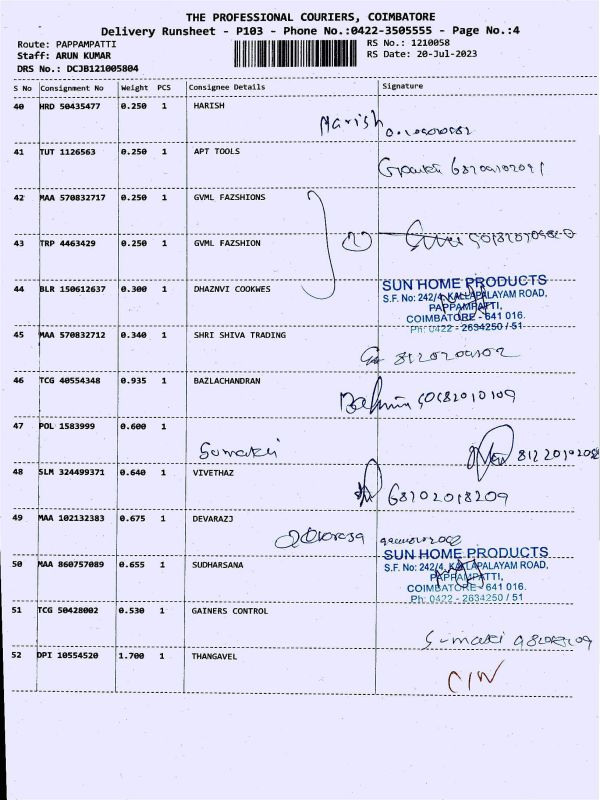 THE PROFESSIONAL COURIERS, COIMBATORE
Delivery Runsheet - P103 - Phone No.:0422-3505555 - Page No.:4
Route: PAPPAMPATTI RS No.: 1210058
Staff: ARUN KUMAR RS Date: 20-Jul-2023
DRS No.: DCJB121005804
S No Consignment No Weight PCS Consignee Details Signature
40 HRD 50435477 0.250 1 HARISH
Harish
41 TUT 1126563 0.250 1 APT TOOLS
42 MAA 570832717 0.250 1 GVML FAZSHIONS
43 TRP 4463429 0.250 1 GVML FAZSHION
44 BLR 150612637 0.300 1 DHAZNVI COOKWES
SUN HOME PRODUCTS
S.F. No: 242/4, KALLAPALAYAM ROAD,
PAPPAMPATTI,
COIMBATORE - 641 016.
Ph: 0422 - 2634250 / 51
45 MAA 570832712 0.340 1 SHRI SHIVA TRADING
46 TCG 40554348 0.935 1 BAZLACHANDRAN
47 POL 1583999 0.600 1
Sumathi
48 SLM 324499371 0.640 1 VIVETHAZ
68202018209
49 MAA 102132383 0.675 1 DEVARAZJ
50 MAA 860757089 0.655 1 SUDHARSANA
SUN HOME PRODUCTS
S.F. No: 242/4, KALLAPALAYAM ROAD,
PAPPAMPATTI,
COIMBATORE - 641 016.
Ph: 0422 - 2634250 / 51
51 TCG 50428002 0.530 1 GAINERS CONTROL
52 DPI 10554520 1.700 1 THANGAVEL
CIN